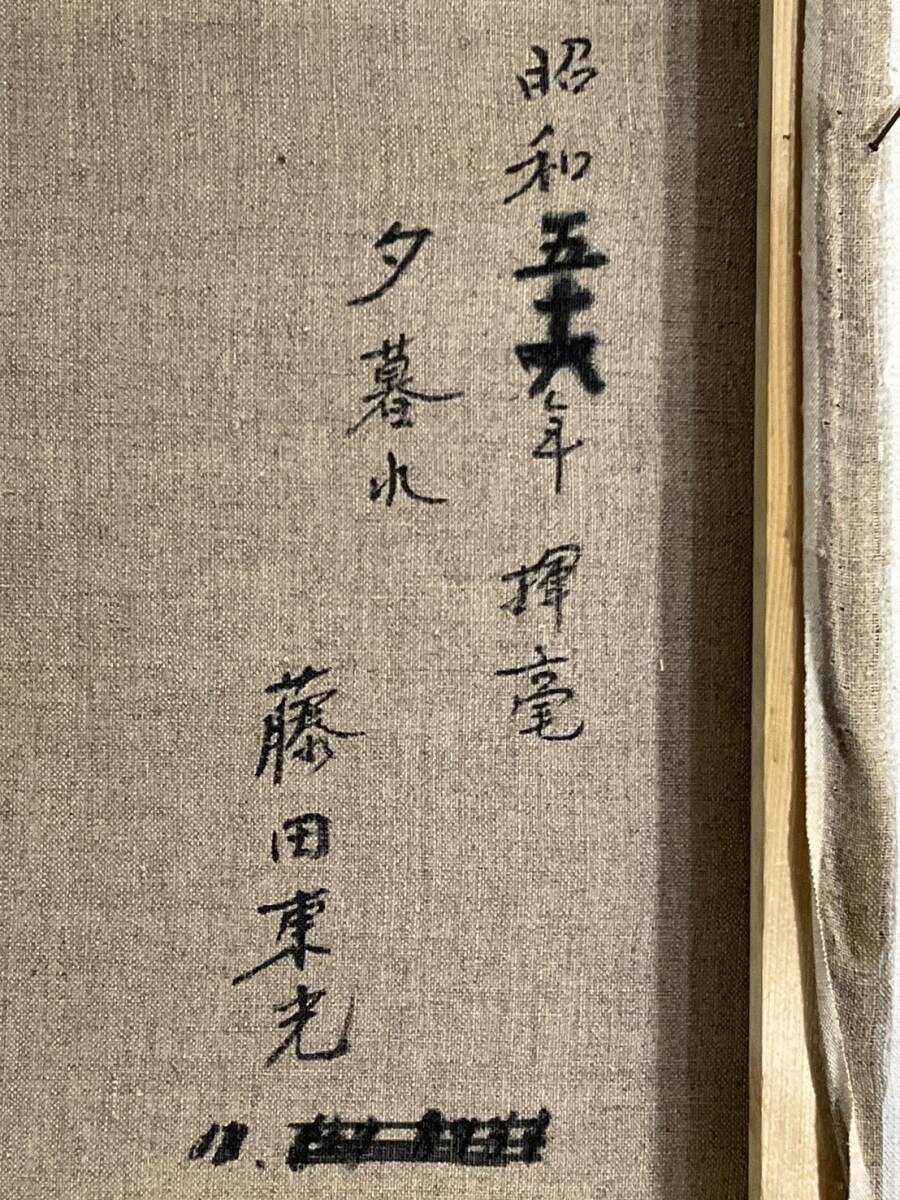 昭和五十六年 揮毫
夕暮れ
藤田東光